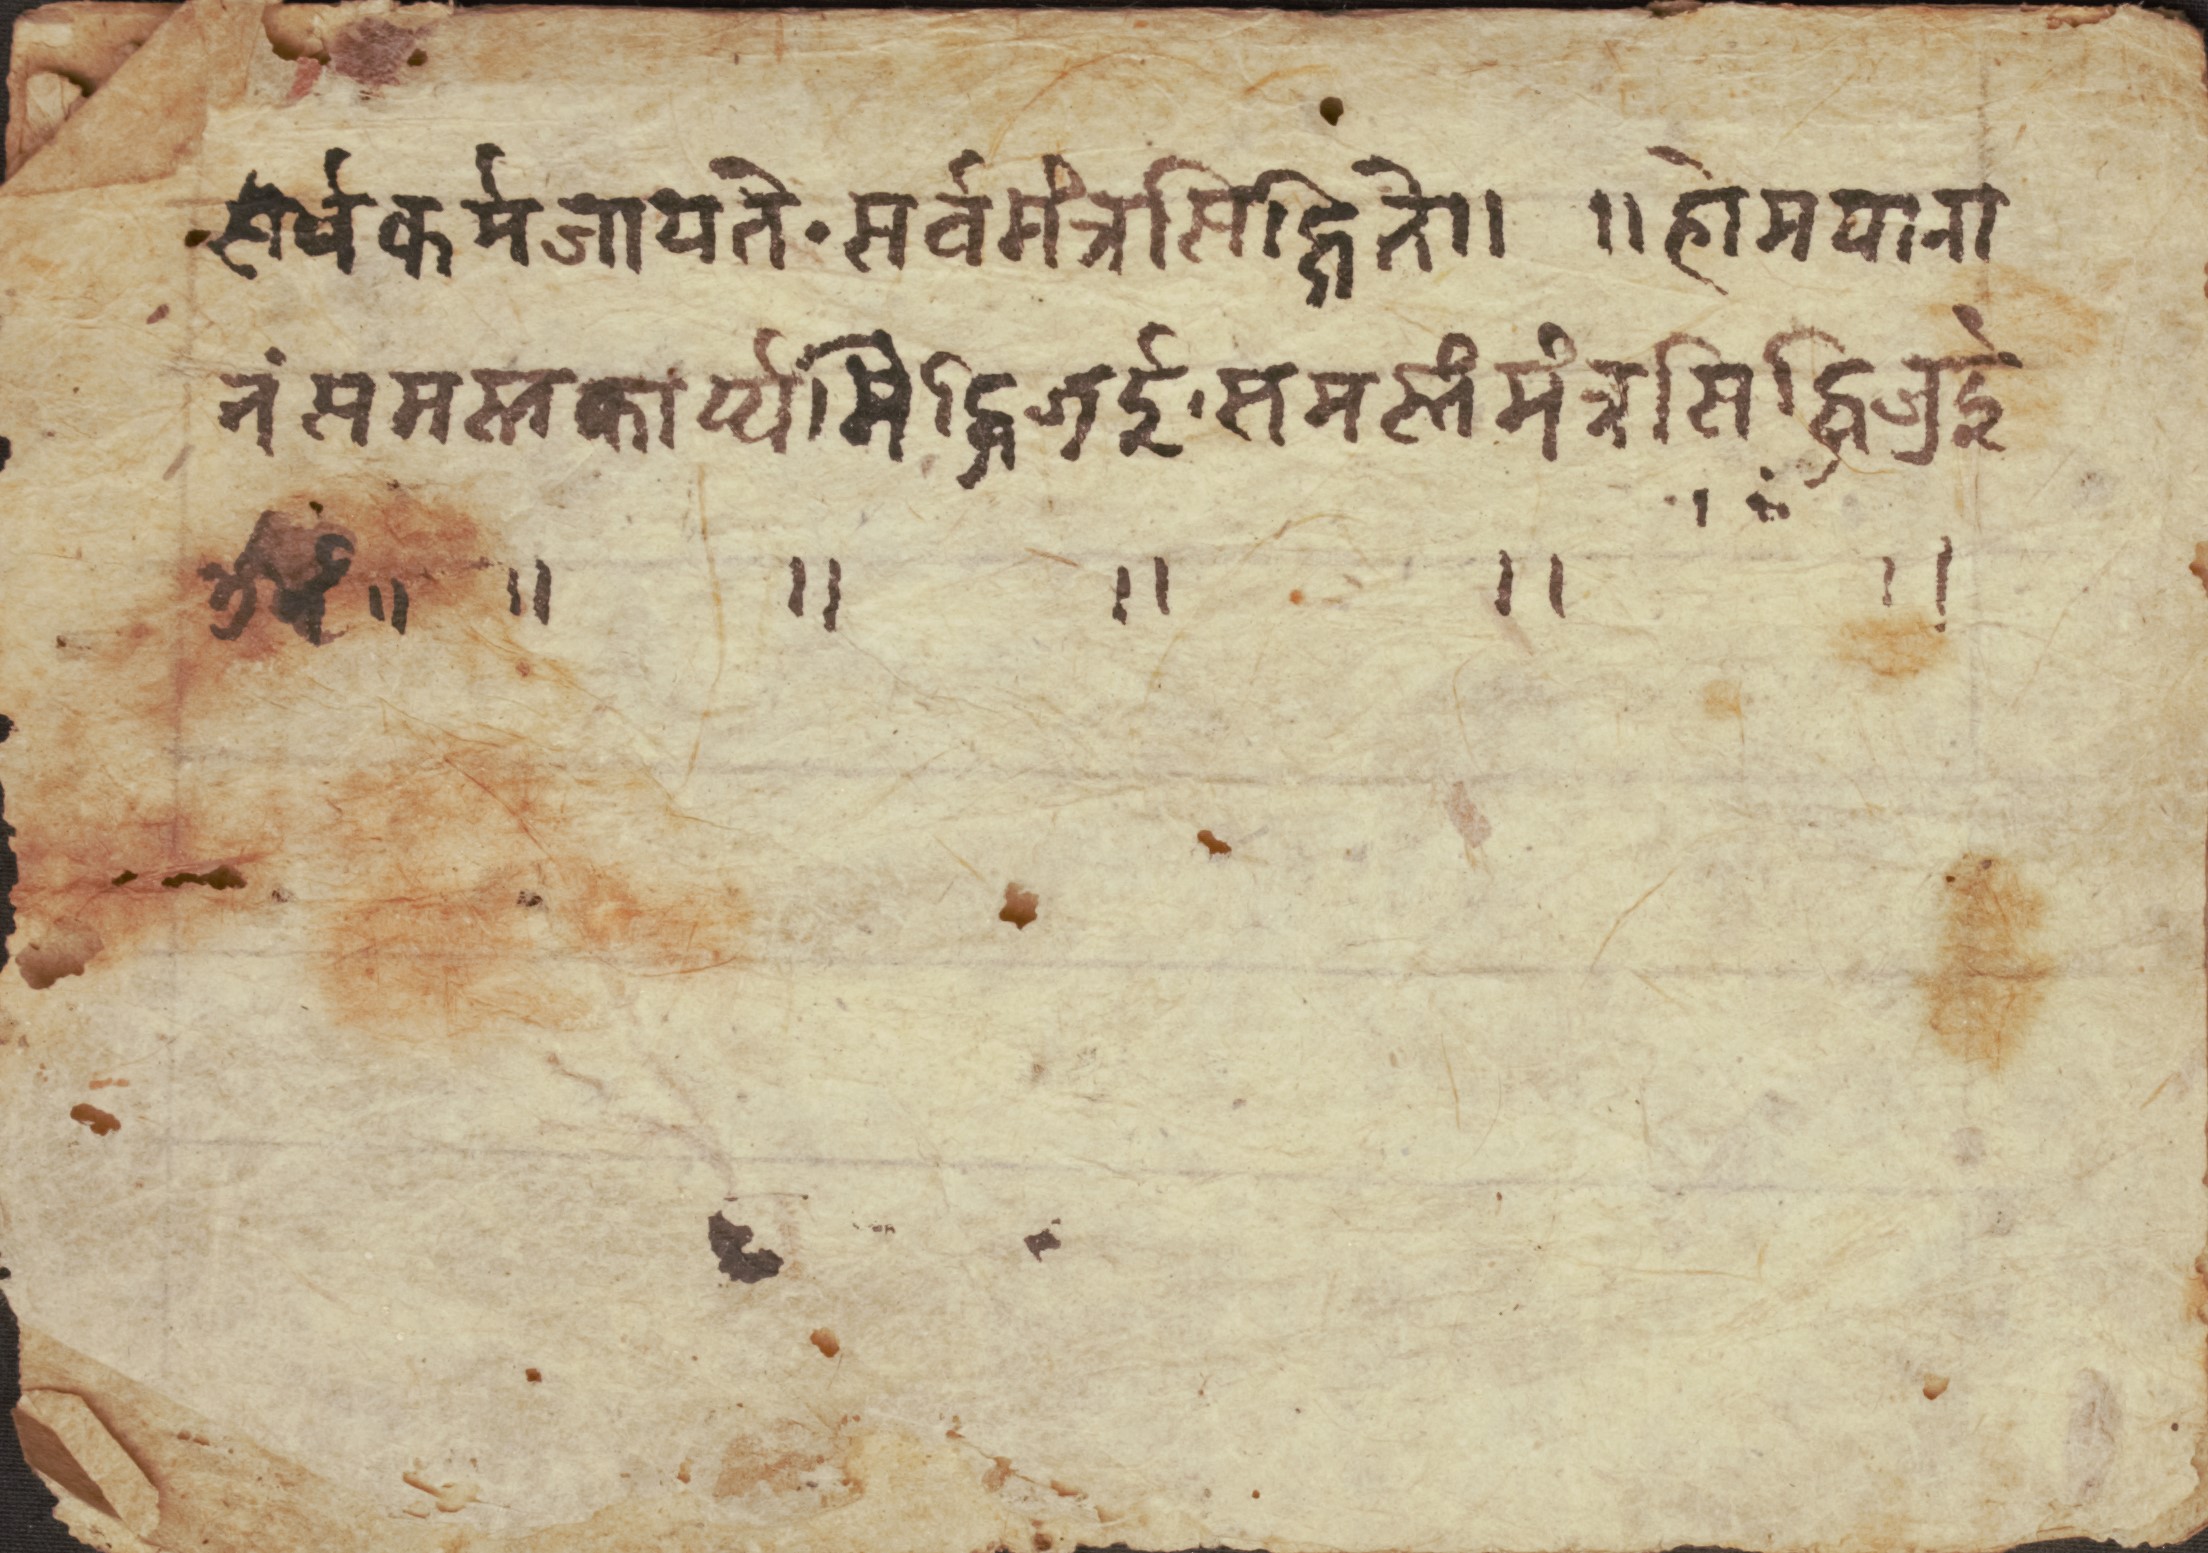 सर्वकर्मजायते॰सर्वमंत्रसिद्धिने॥ ॥होमयाना
नं समस्तकार्य्यसिद्धिजुई॰समस्तंमंत्रसिद्धिजुई
॥ ॥ ॥ ॥ ॥ ॥